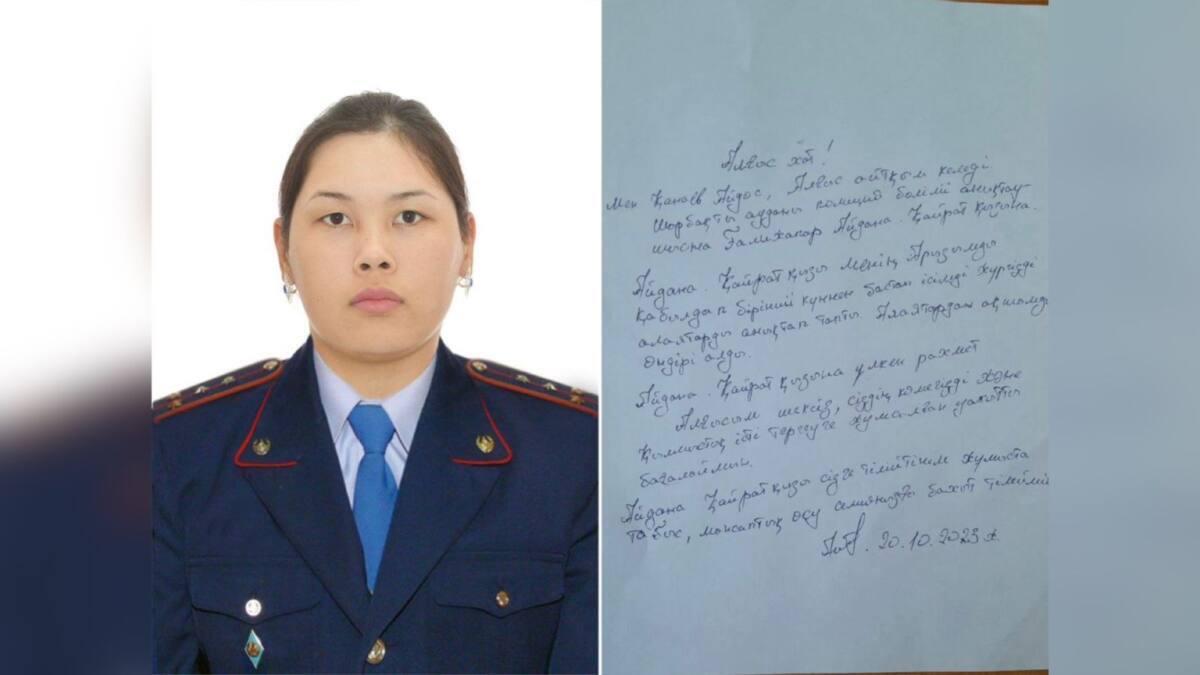 Алғыс хат!
Мен Қанаев Айдос, Алғыс айтқым келеді
Шарбақты ауданы полиция бөлімі анықтау-
шысна Ғалижапар Айдана. Қайрат қызына.
Айдана. Қайрат қызы менің Арызымды
қабылдап бірінші күннен бастап ісімді жүргізді
алаяқтарды анықтап тапты. Алаяқтардан ақшамды
өндірі алды.
Айдана. Қайрат қызына үлкен рахмет
Алғысым шексіз, сіздің көмегіңізді және
Қылмыстық істі тергеуге жұмсалған уақытты
бағалаймын.
Айдана Қайрат қызы сізге тілейтінім жұмыста
табыс, мансаптық өсу семияңызға бақыт тілеймін
20.10.2023ж